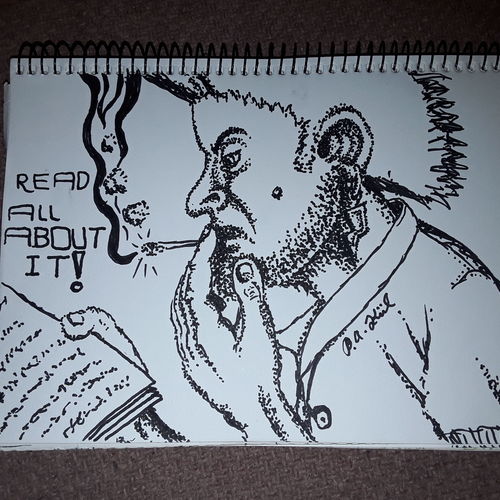 READ
ALL
ABOUT
IT!